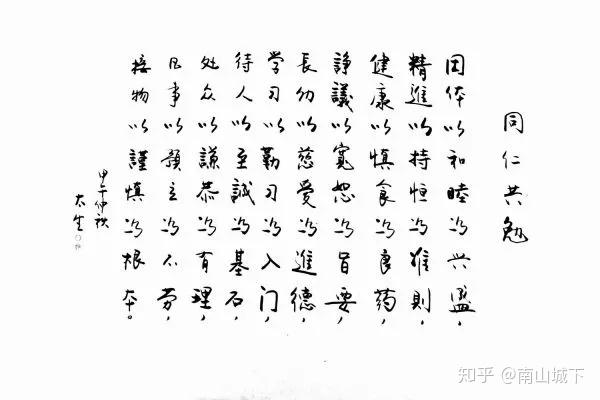 同仁共勉
团体以和睦为兴盛，
精進以持恒为准則，
健康以慎食为良药，
諍議以寬恕为旨要，
長幼以慈爱为進德，
学习以勤习为入门，
待人以至誠为基石，
处众以謙恭为有理，
凡事以預立为不劳，
接物以謹慎为根本。
甲午仲秋
知乎 @南山城下